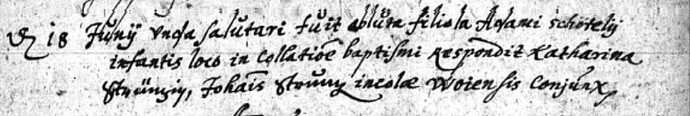 18 Junij unda salutari fuit abluta filiola Adami Schotelij
infantis loco in Collatiōe baptismi Respondit Katharina
Strünzin, Johais Strunz incolæ Woiensis Conjunx